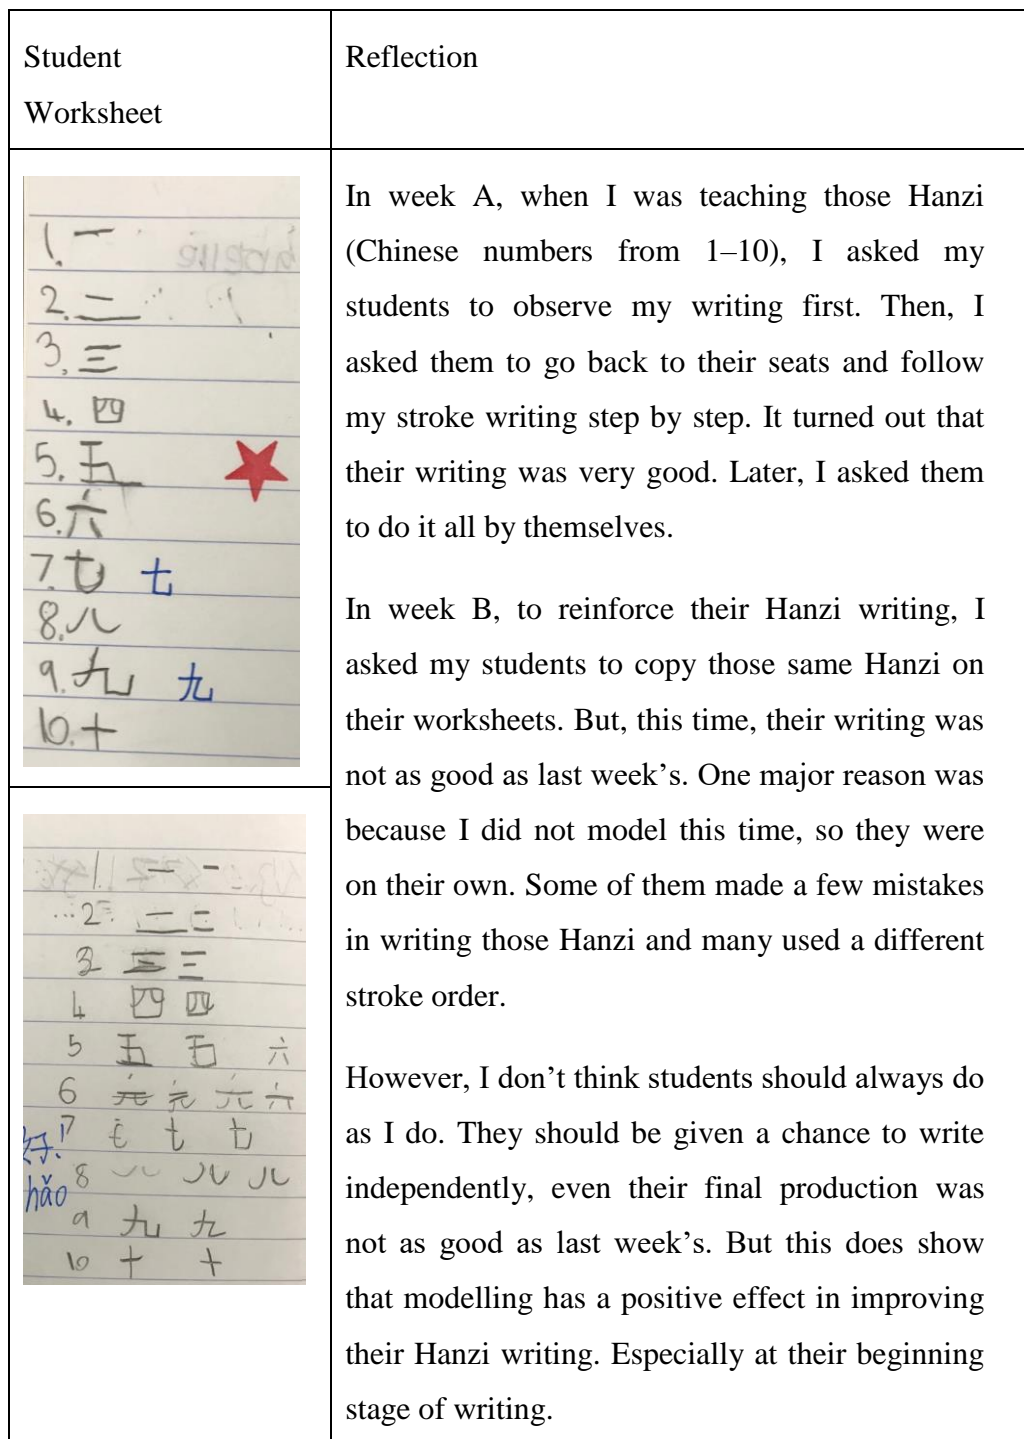 Student
Worksheet
Reflection
1. 一
2. 二
3. 三
4. 四
5. 五
6. 六
7. 七 七
8. 八
9. 九 九
10. 十
In week A, when I was teaching those Hanzi
(Chinese numbers from 1–10), I asked my
students to observe my writing first. Then, I
asked them to go back to their seats and follow
my stroke writing step by step. It turned out that
their writing was very good. Later, I asked them
to do it all by themselves.
In week B, to reinforce their Hanzi writing, I
asked my students to copy those same Hanzi on
their worksheets. But, this time, their writing was
not as good as last week’s. One major reason was
because I did not model this time, so they were
on their own. Some of them made a few mistakes
in writing those Hanzi and many used a different
stroke order.
However, I don’t think students should always do
as I do. They should be given a chance to write
independently, even their final production was
not as good as last week’s. But this does show
that modelling has a positive effect in improving
their Hanzi writing. Especially at their beginning
stage of writing.
1. 一 一
2. 二 二
3 三 三
4 四 四
5 五 五 六
6 六
7 七 七
好!
hǎo
8 八 八
9 九 九
10 十 十